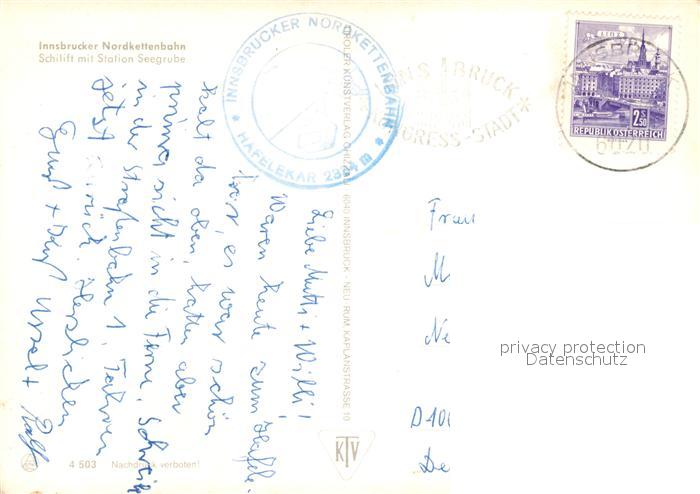 Innsbrucker Nordkettenbahn
Schilift mit Station Seegrube
INNSBRUCKER NORDKETTENBAHN
* HAFELEKAR 2334 m *
INNSBRUCK
KONGRESS-STADT*
6020
LINZ
2.50
REPUBLIK ÖSTERREICH
TIROLER KUNSTVERLAG 6040 INNSBRUCK - NEU RUM, KAPLANSTRASSE 10
Liebe Mutti + Willi!
Waren heute zum Hafele-
kar, es war schön
kalt da oben, hatten aber
prima Sicht in die Ferne,
in der Straßenbahn 1, Fahren
jetzt zurück. Herzlichen
Gruß + Kuß Ursel + Rolf
Frau
M
Ne
D 100
De
privacy protection
Datenschutz
KTV
4 503 Nachdruck verboten!